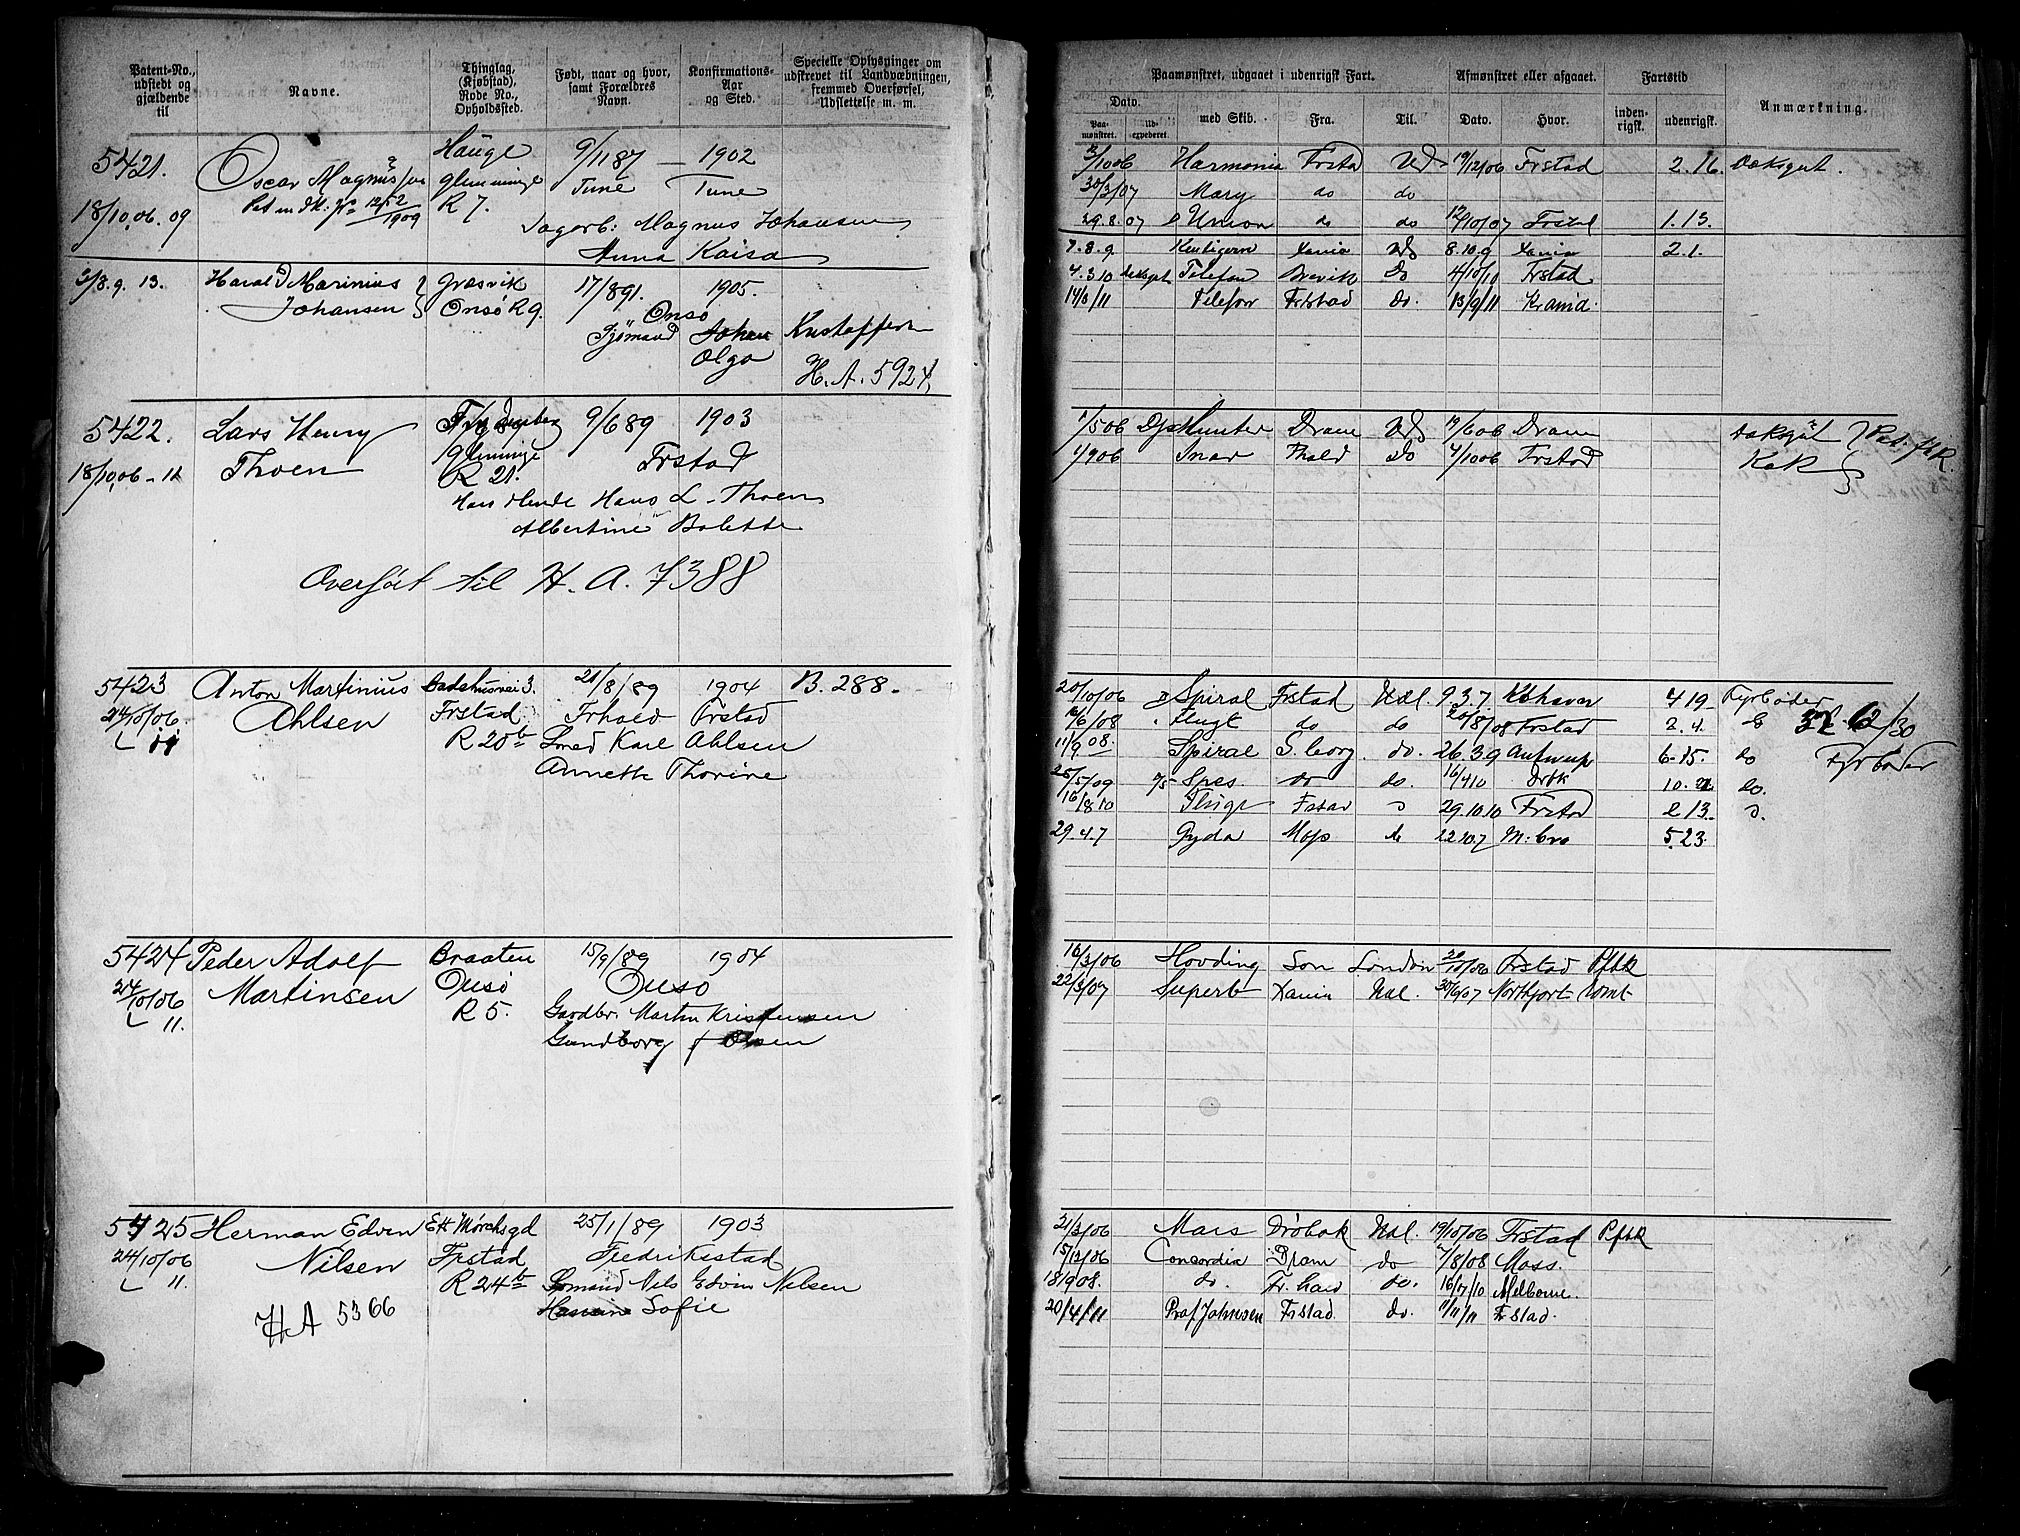 Patent-No., udstedt og gjældende til
Navne.
Thinglag, (Kjøbstad), Rode No., Opholdssted.
Født, naar og hvor, samt Forældres Navn.
Konfirmations-Aar og Sted.
Specielle Oplysninger om udskrevet til Landvæbningen, fremmed Overførsel, Udslettelse m. m.
5421.
18/10.06. 09
Oscar Magnus
Hauge
Glemminge
R 7.
9/11 87 — 1902
Tune Tune
Magnus Johansen
Anna Kaisa
3/8.9. 13.
Harald Marinius
Johansen
Græsvik
Onsø R 9.
17/8 91. 1905.
Onsø
Sjømand Johan
Olga
H. A. 5924
5422.
18/10.06 - 11
Lars Henry
Thoen
Glemminge
R 21.
9/6 89 1903
Frstad
Hans L. Thoen
Albertine Bolette
Overført til H. A. 7388
5423
24/10/06.
Anton Martinius
Ahlsen
Badehusvei 3.
Frstad
R 20b
21/8/89 1904
Frhald Frstad
Smed Karl Ahlsen
Annette Thorine
B. 288.
5424
24/10/06
11.
Peder Adolf
Martinsen
Braaten
Onsø
R 5.
15/9/89 1904
Onsø
Gaardbr. Martin Kristensen
Gundborg Olsen
5425
24/10/06
11.
Herman Edvin
Nilsen
HA 5366
Ett Mørchsgd
Frstad
R 24b
25/1/89 1903
Fredriksstad
Nels Edvin Nilsen
Sofie
Paamønstret, udgaaet i udenrigsk Fart.
Afmønstret eller afgaaet.
Fartstid
Anmærkning.
Dato.
Paa-mønstret.
Ud-expederet.
med Skib.
Fra.
Til.
Dato.
Hvor.
inden-rigsk.
udenrigsk.
Harmonia Frstad Uds 19/12/06 Frstad 2.16. Dæksgut.
30/3/07 Mary do do
29.8.07 D Union do do 12/10/07 Frstad 1.13.
7.8.9. Xania Uds 8.10.9 Xania 2.1.
4.3.10 Telefon Brevik Do 4/10/10 Frstad
14/3/11 Telefon Frstad do. 13/9/11 Kr.sand.
1/5 06 Hunter Dram Uds 19/6 06 Dram Dæksgut
1/9 06 Snar Fhald Do 4/10 06 Frstad Kok
20/10/06 D Spiral Frstad Udl. 9.3.7 Kbhavn 4 19 Fyrbøder
16/6/08 Flugt do do 20/8/08 Frstad 2.4.
11/9 08. Spiral S. Georg. do. 26.3.9 Antwerp 6-15. do
Fyrbøder
25/5/09 Spes. do do. 16/4 10 Drbk 10. 21 do.
16/8/10 Flugt Fstad 29.10.10 Frstad 2 13.
29.4.7 Gyda Moss do 22.10.7 5.23.
16/3/06 Hovding Son London 20/10/06 Frstad Pftk
22/3/07 Superb Xania Udl. 30/6/07 Northport
21/3/06 Mars Drøbak Udl. 19/10/06 Frstad Pftk
15/12/06 Concordia Dram do 7/8/08 Moss.
18 1908. do. Fr. hald do. 16/7/10 Melborne.
20/4/11 Prof Johnsen Frstad do. 11/11/11 Frstad.